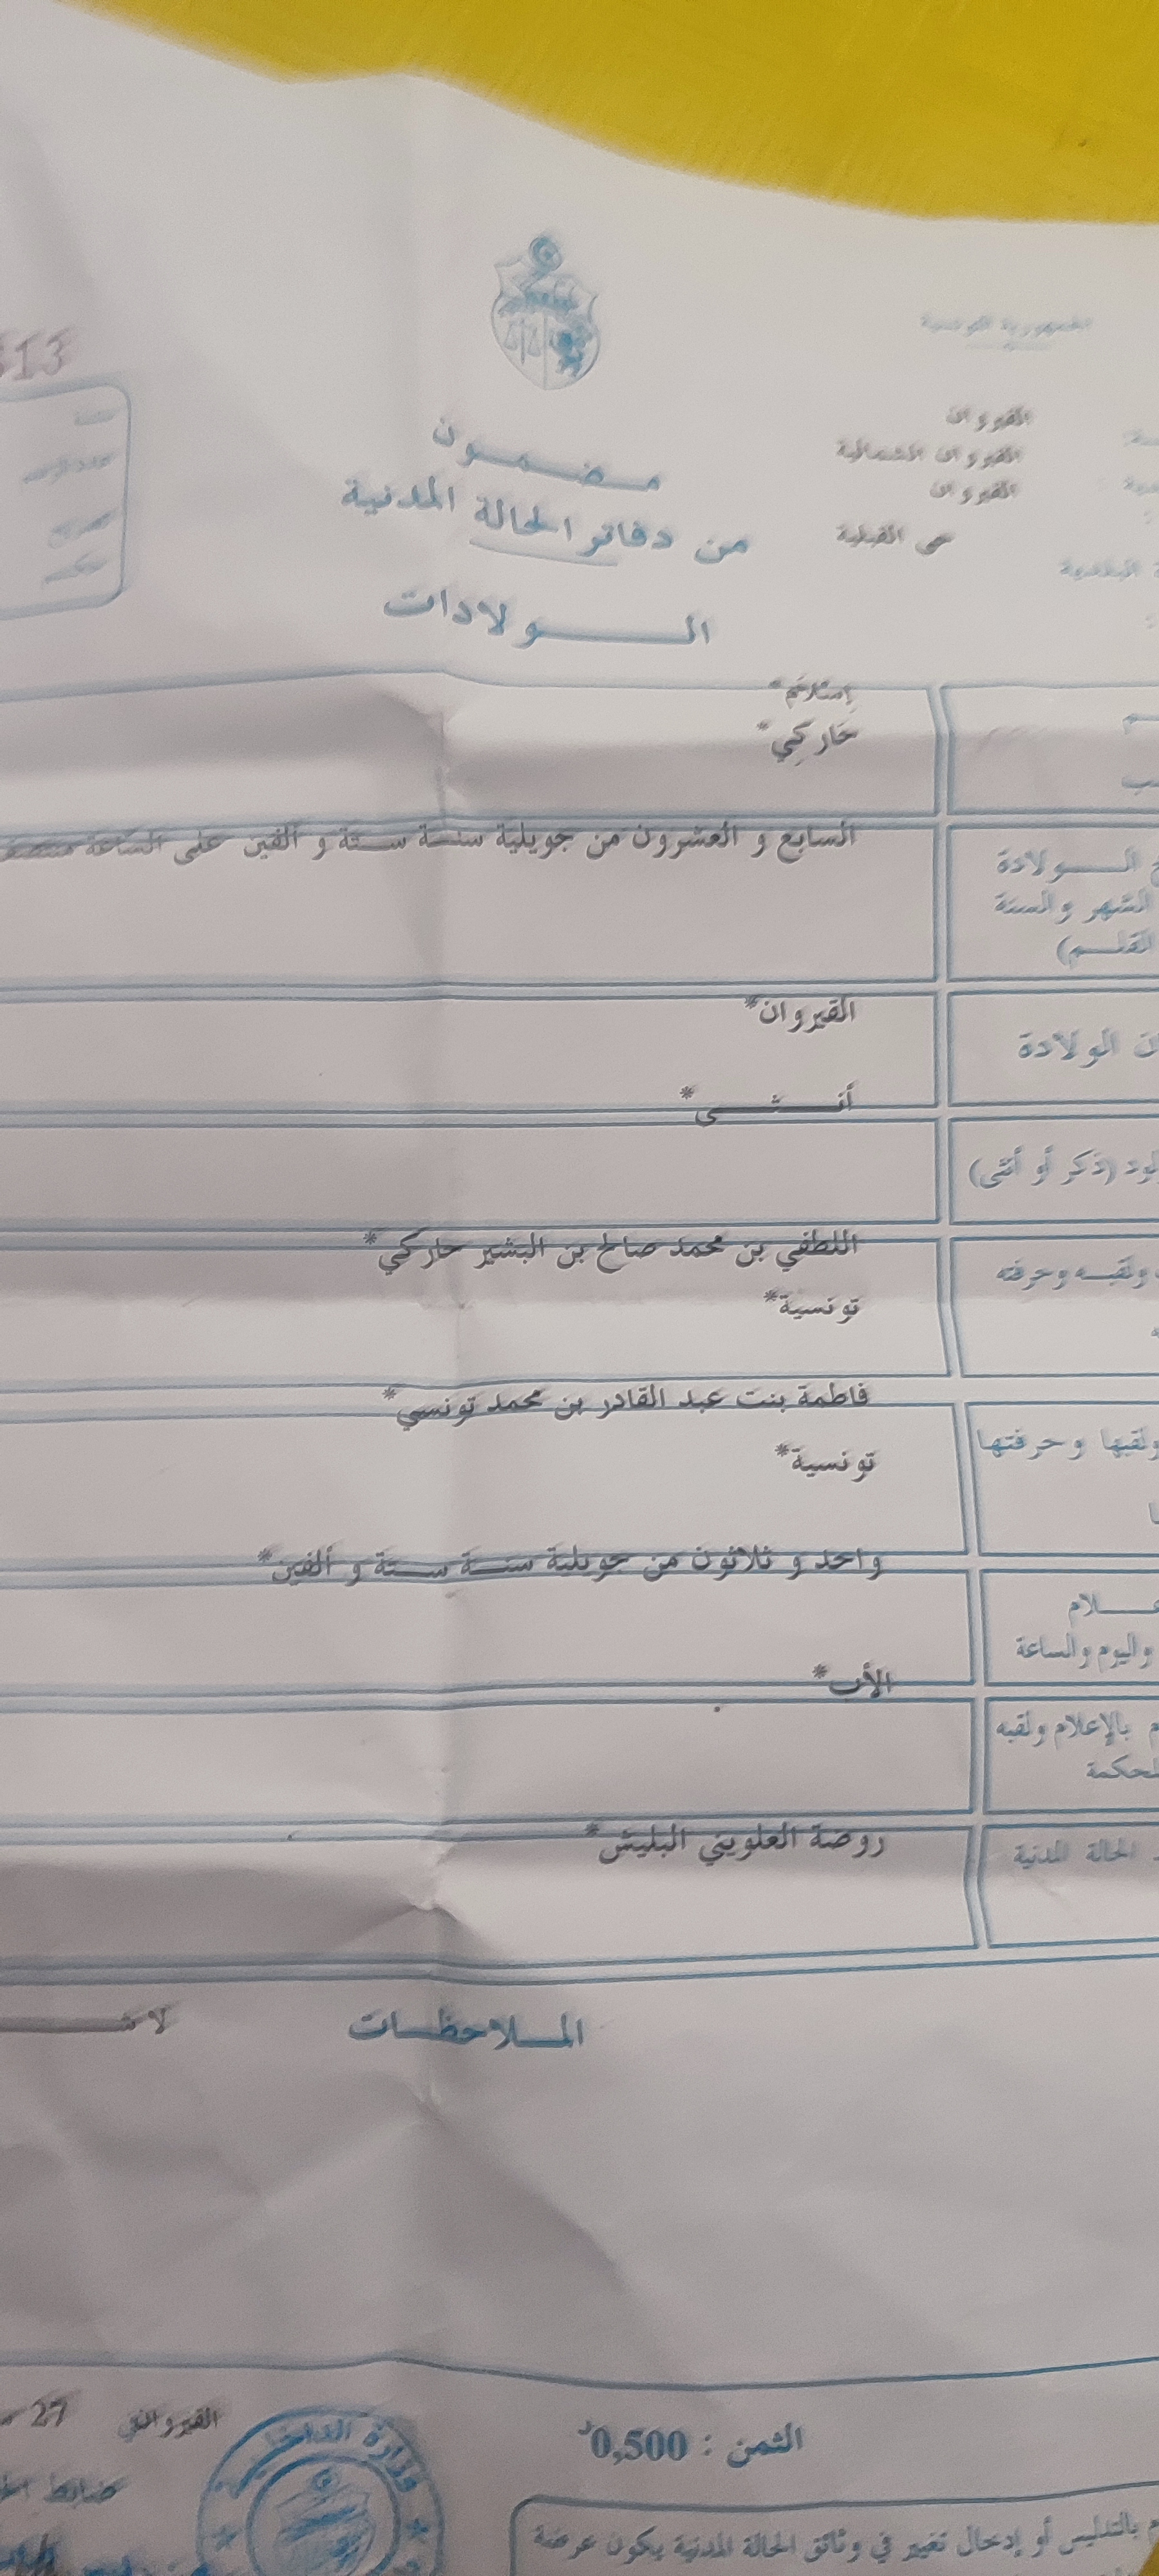 الجمهورية التونسية
القيروان
القيروان الشمالية
القيروان
حي القبلية
البلدية
513
مضمون
من دفاتر الحالة المدنية
الولادات
إسلام*
حاركي*
السابع و العشرون من جويلية سنة ستة و ألفين على الساعة منتصف
الولادة
الشهر والسنة
القلم)
القيروان*
الولادة
أنثى*
(ذكر أو أنثى)
اللطفي بن محمد صالح بن البشير حاركي*
ولقبه وحرفته
تونسية*
فاطمة بنت عبد القادر بن محمد تونسي*
ولقبها وحرفتها
تونسية*
واحد و ثلاثون من جويلية سنة ستة و ألفين*
واليوم والساعة
الأب*
بالإعلام ولقبه
روضة العلويني البليش*
الحالة المدنية
الملاحظات
القيروان في 27
الثمن : 0,500د
وزارة الداخلية
ضابط
بالتدليس أو إدخال تغيير في وثائق الحالة المدنية يكون عرضة